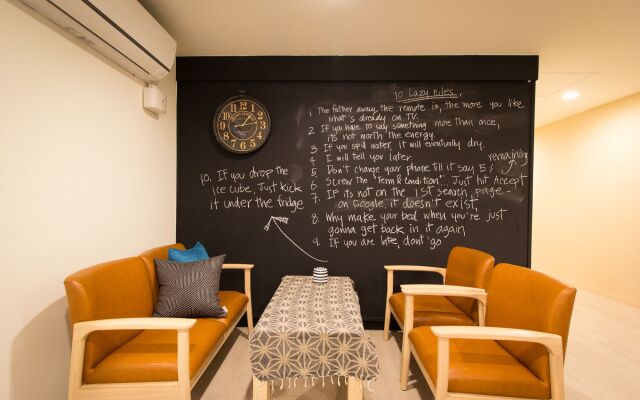 10 Lazy rules.
1 The father away the remote is, the more you like
what's already on TV.
2 If you have to say something more than once,
it's not worth the energy.
3 If you spill water, it will eventually dry.
4 I will tell you later.
remaining
5 Don't change your phone till it say 5%
6 Screw The "Term & Condition". Just hit Accept
7. If its not on the 1st search page
on Google, it doesn't exist.
8. Why make your bed when you're just
gonna get back in it again
9. If you are late, dont go
10. If you drop the
ice cube, Just kick
it under the fridge